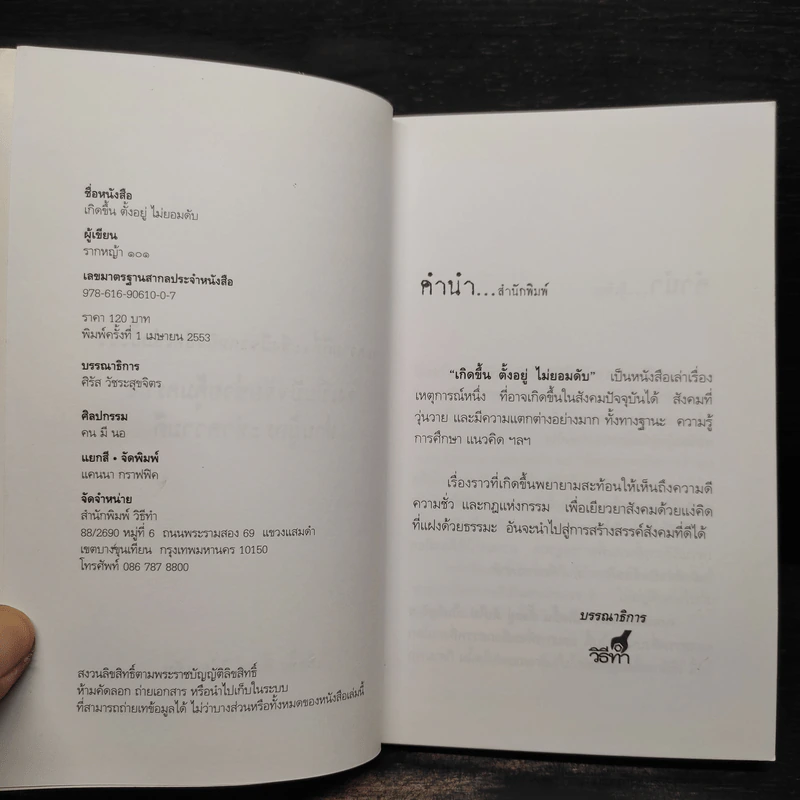 ชื่อหนังสือ
เกิดขึ้น ตั้งอยู่ ไม่ยอมดับ
ผู้เขียน
รากหญ้า ๑๐๑
เลขมาตรฐานสากลประจำหนังสือ
978-616-90610-0-7
ราคา 120 บาท
พิมพ์ครั้งที่ 1 เมษายน 2553
บรรณาธิการ
ศิรัส วัชระสุขจิตร
ศิลปกรรม
คน มี นอ
แยกสี • จัดพิมพ์
แคนนา กราฟฟิค
จัดจำหน่าย
สำนักพิมพ์ วิธีทำ
88/2690 หมู่ที่ 6 ถนนพระรามสอง 69 แขวงแสมดำ
เขตบางขุนเทียน กรุงเทพมหานคร 10150
โทรศัพท์ 086 787 8800
สงวนลิขสิทธิ์ตามพระราชบัญญัติลิขสิทธิ์
ห้ามคัดลอก ถ่ายเอกสาร หรือนำไปเก็บในระบบ
ที่สามารถถ่ายเทข้อมูลได้ ไม่ว่าบางส่วนหรือทั้งหมดของหนังสือเล่มนี้
คำนำ...สำนักพิมพ์
"เกิดขึ้น ตั้งอยู่ ไม่ยอมดับ" เป็นหนังสือเล่าเรื่อง
เหตุการณ์หนึ่ง ที่อาจเกิดขึ้นในสังคมปัจจุบันได้ สังคมที่
วุ่นวาย และมีความแตกต่างอย่างมาก ทั้งทางฐานะ ความรู้
การศึกษา แนวคิด ฯลฯ
เรื่องราวที่เกิดขึ้นพยายามสะท้อนให้เห็นถึงความดี
ความชั่ว และกฎแห่งกรรม เพื่อเยียวยาสังคมด้วยแง่คิด
ที่แฝงด้วยธรรมะ อันจะนำไปสู่การสร้างสรรค์สังคมที่ดีได้
บรรณาธิการ
วิธีทำ